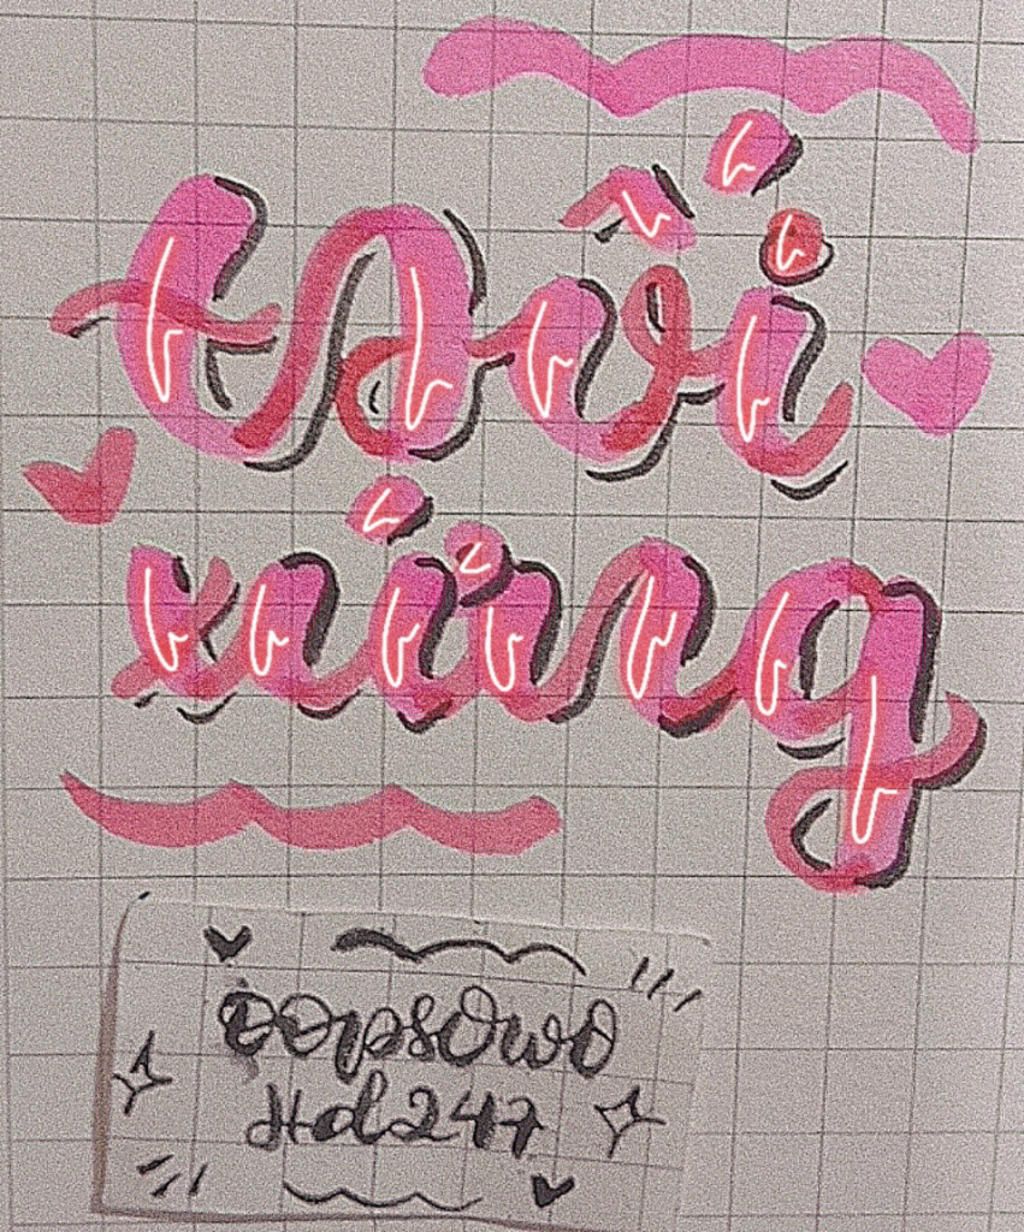 xứng
oopsOwo
Hd247